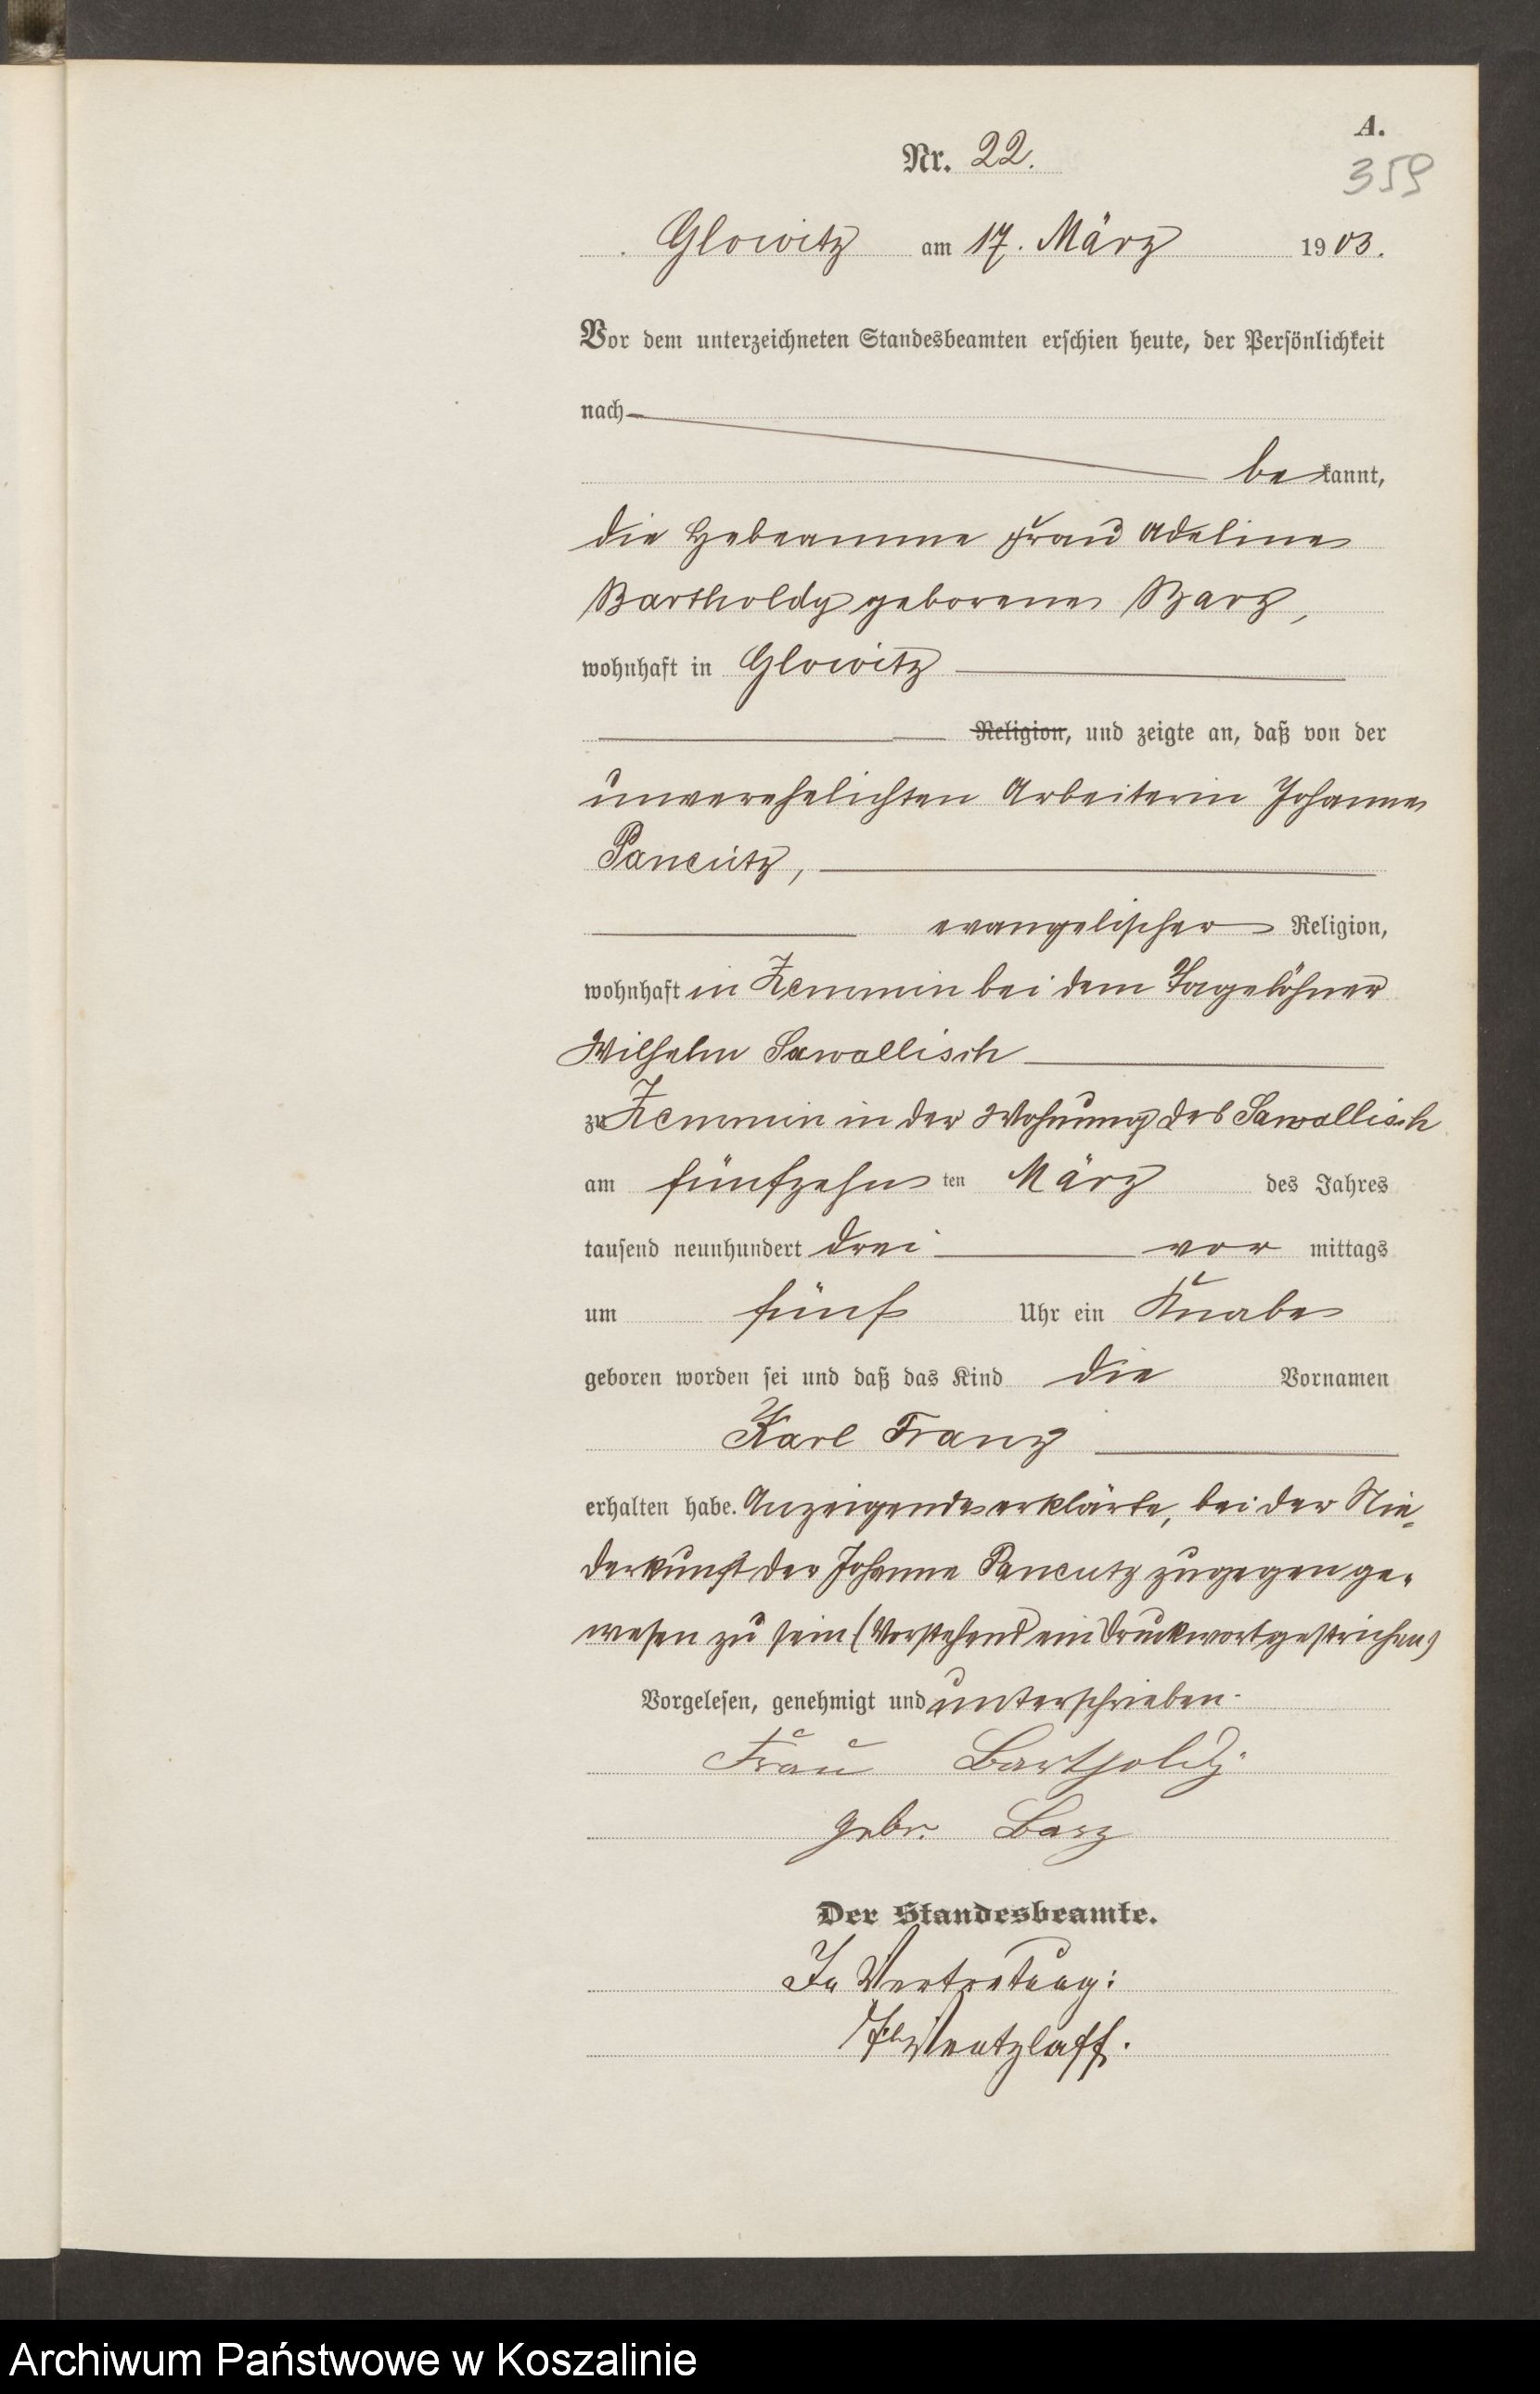 A.
Nr. 22.
359
Glowitz am 17. März 1903.
Vor dem unterzeichneten Standesbeamten erschien heute, der Persönlichkeit
nach
be kannt,
die Hebeamme Frau Adeline
Bartholdy geborene Barz,
wohnhaft in Glowitz
Religion, und zeigte an, daß von der
unverehelichten Arbeiterin Johanne
Pancutz,
evangelischer Religion,
wohnhaft in Zemmin bei dem Tagelöhner
Wilhelm Sawallisch
zu Zemmin in der Wohnung des Sawallisch
am fünfzehn ten März des Jahres
tausend neunhundert drei vor mittags
um fünf Uhr ein Knabe
geboren worden sei und daß das Kind die Vornamen
Karl Franz
erhalten habe. Anzeigende erklärte, bei der Nie-
derkunft der Johanne Pancutz zugegen ge-
wesen zu sein (Vorstehend ein Druckwort gestrichen)
Vorgelesen, genehmigt und unterschrieben.
Frau Bartholdy
gebr. Barz
Der Standesbeamte.
In Vertretung:
Wentzlaff.
Archiwum Państwowe w Koszalinie